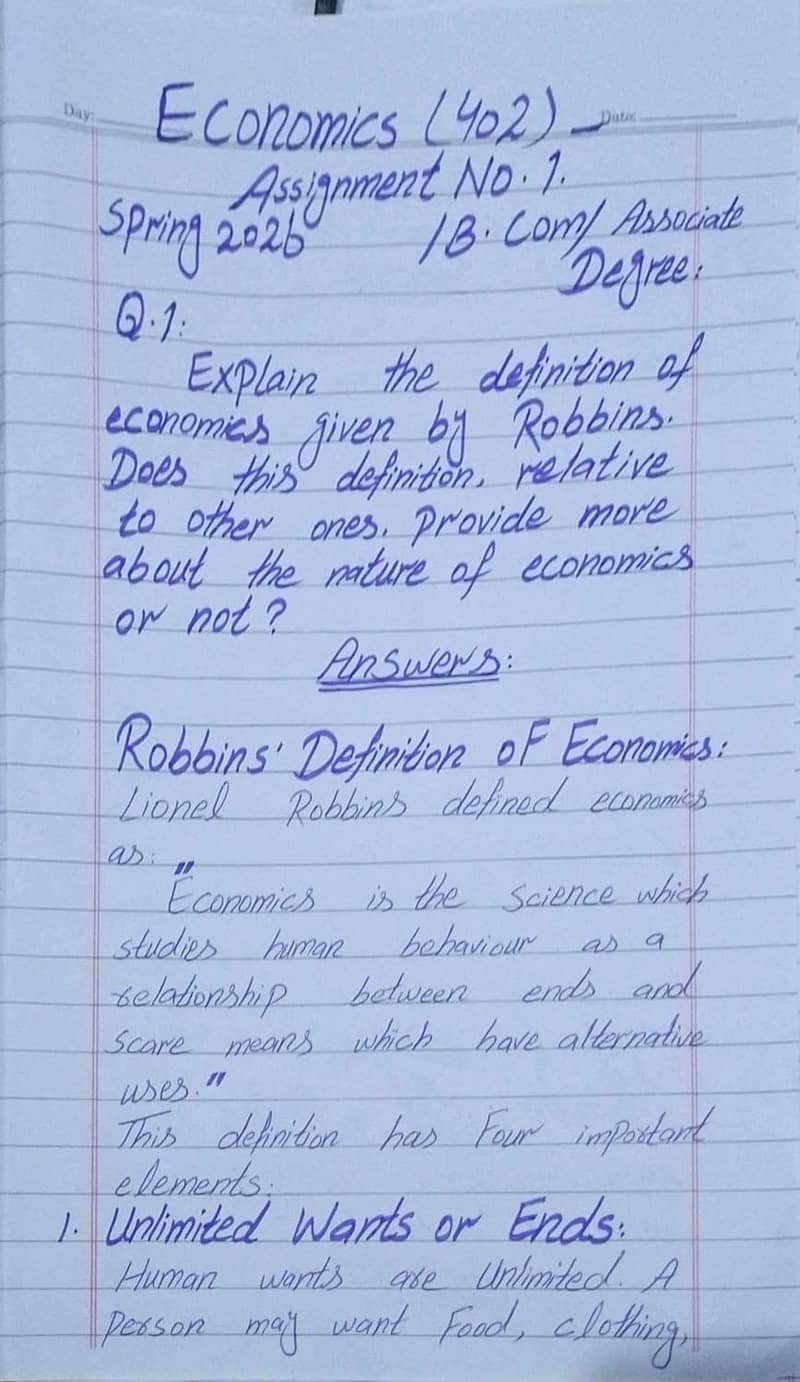 Day:
Date:
Economics (402)
Assignment No. 1.
Spring 2026 / B. Com/ Associate
Degree:
Q.1:
Explain the definition of
economics given by Robbins.
Does this definition, relative
to other ones, provide more
about the nature of economics
or not?
Answers:
Robbins' Definition of Economics:
Lionel Robbins defined economics
as: "
Economics is the science which
studies human behaviour as a
relationship between ends and
scare means which have alternative
uses."
This definition has Four important
elements:
1. Unlimited Wants or Ends:
Human wants are Unlimited. A
Person may want Food, clothing,